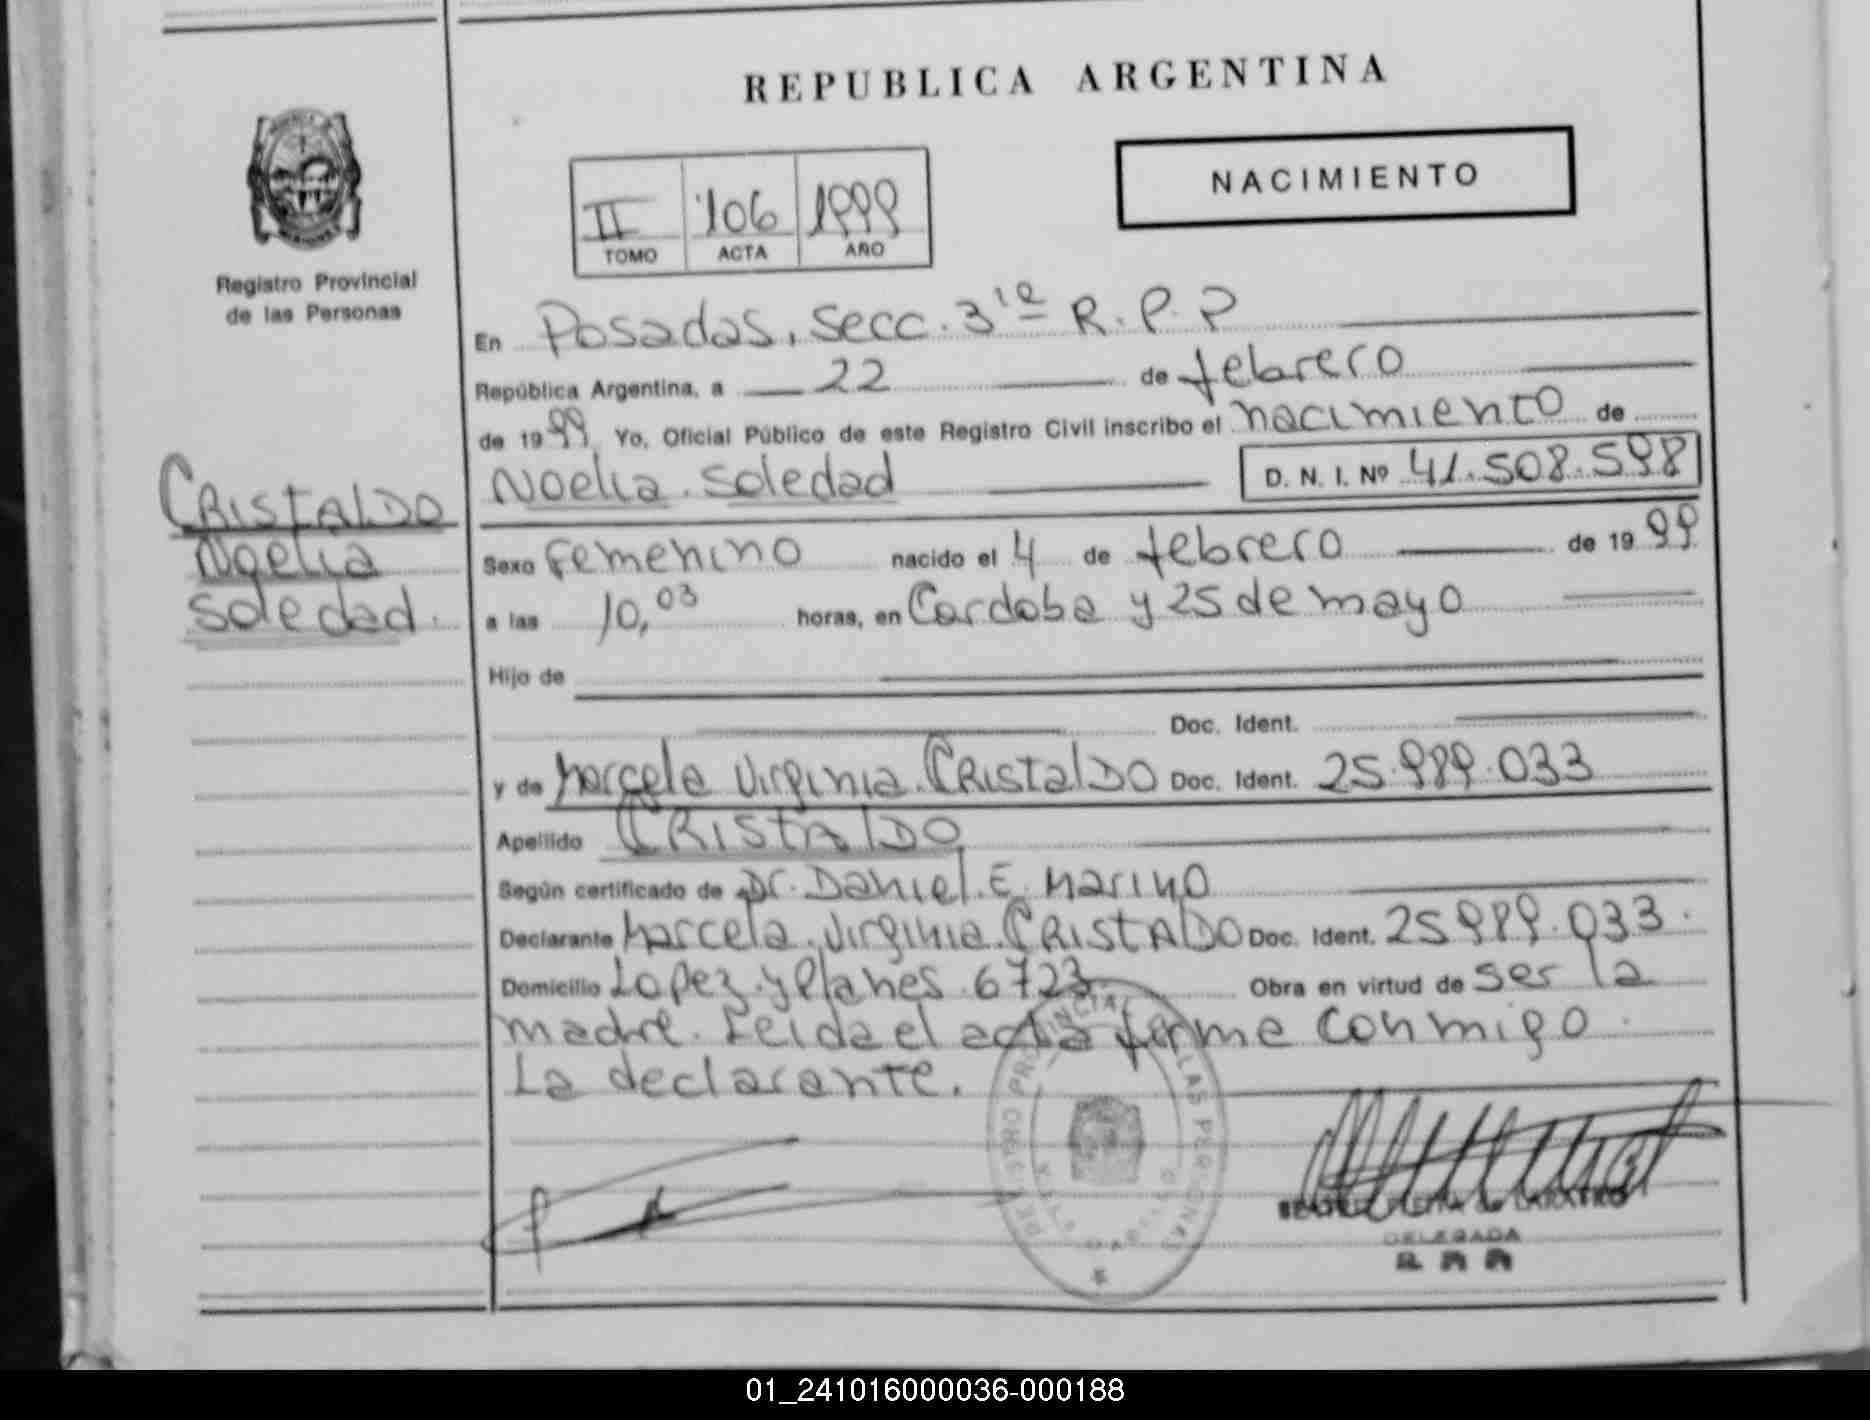 REPUBLICA ARGENTINA
NACIMIENTO
II 106 1999
TOMO ACTA AÑO
Registro Provincial
de las Personas
En Posadas, Secc. 3ra R.P.P
República Argentina, a 22 de febrero
de 1999 Yo, Oficial Público de este Registro Civil inscribo el nacimiento de
Noelia Soledad D. N. I. Nº 41.508.598
CRISTALDO
Noelia
Soledad.
Sexo femenino nacido el 4 de febrero de 1999
a las 10,03 horas, en Cordoba y 25 de mayo
Hijo de
Doc. Ident.
y de Marcela Virginia CRISTALDO Doc. Ident. 25.989.033
Apellido CRISTALDO
Según certificado de Dr. Daniel E. Marino
Declarante Marcela Virginia CRISTALDO Doc. Ident. 25989.033.
Domicilio Lopez y Planes 6723 Obra en virtud de ser la
madre. Leida el acta firme conmigo
La declarante.
REGISTRO PROVINCIAL DE LAS PERSONAS
DELEGADA
01_241016000036-000188